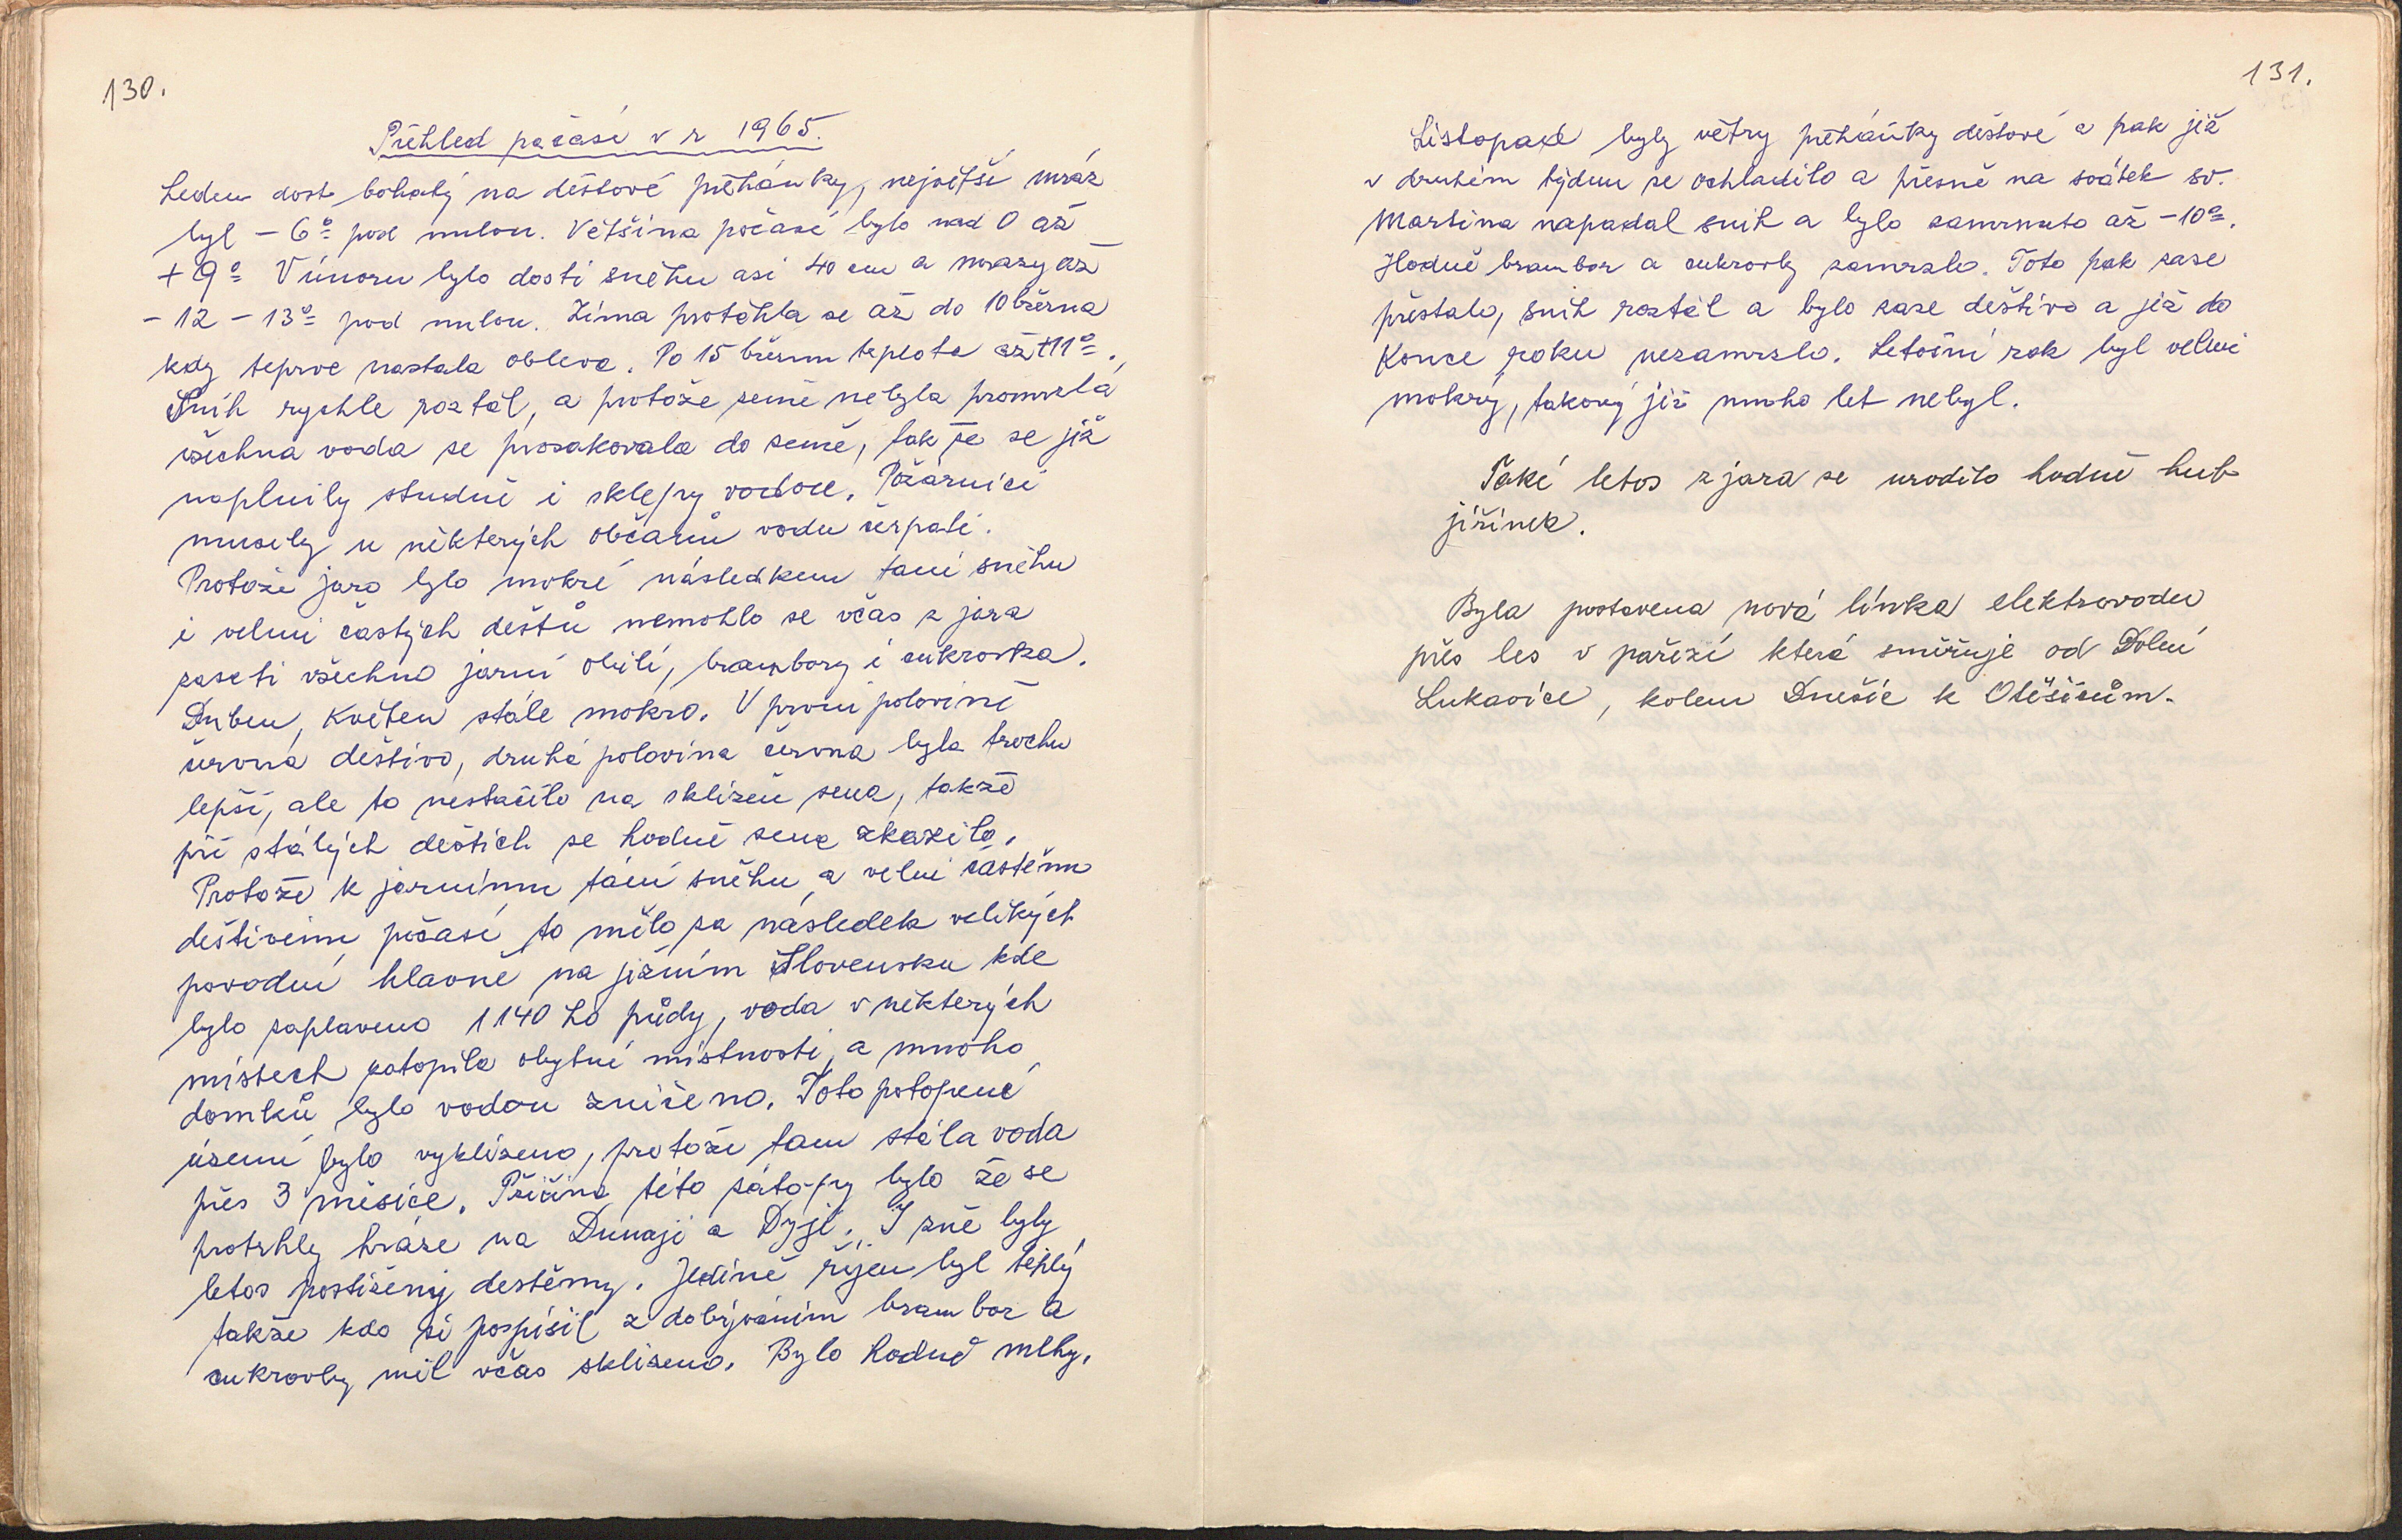 130.
Přehled počasí v r 1965.
Leden dost bohatý na dešťové přeháňky, největší mráz
byl – 6° pod nulou. Většina počasí bylo nad 0 až
+ 9° V únoru bylo dosti sněhu asi 40 cm a mrazy až
– 12 – 13° pod nulou. Zima protáhla se až do 10 března
kdy teprve nastala obleva. Po 15 březnu teplota až +11°.
Sníh rychle roztál, a protože země nebyla promrzlá
všechna voda se prosakovala do země, tak že se již
naplnily studně i sklepy vodou. Požárníci
musely u některých občanů vodu čerpati.
Protože jaro bylo mokré následkem taní sněhu
i velmi častých deštů nemohlo se včas z jara
zaseti všechno jarní obilí, brambory i cukrovka.
Duben, Květen stále mokro. V první polovině
června deštivo, druhá polovina června byla trochu
lepší, ale to nestačilo na sklizeň sena, takže
při stálých deštích se hodně sena zkazilo.
Protože k jarnímu tání sněhu a velmi častému
deštivému počasí to mělo za následek velikých
povodní hlavně na jižním Slovensku kde
bylo zaplaveno 1140 ha půdy, voda v některých
místech zatopila obytné místnosti, a mnoho
domků bylo vodou zničeno. Toto potopené
území bylo vyklizeno, protože tam stála voda
přes 3 měsíce. Příčina této zátopy bylo že se
protrhly hráze na Dunaji a Dyji. I žně byly
letos postiženy destěmy. Jedině říjen byl teplý
takže kdo si pospíšil z dobýváním brambor a
cukrovky měl včas sklizeno. Bylo hodně mlhy.
131.
Listopad byly větry přeháňky dešťové a pak již
v druhém týdnu se ochladilo a přesně na svátek sv.
Martina napadal snih a bylo zamrznuto až –10°.
Hodně brambor a cukrovky zamrzlo. Toto pak zase
přestalo, snih roztál a bylo zase deštivo a již do
Konce roku nezamrzlo. Letošní rok byl velmi
mokrý, takový již mnoho let nebyl.
Také letos z jara se urodilo hodně hub
jižinek.
Byla postavena nová linka elektrovodu
přes les v pařezí která směřuje od Dolní
Lukavice, kolem Dnešic k Otěšicům.